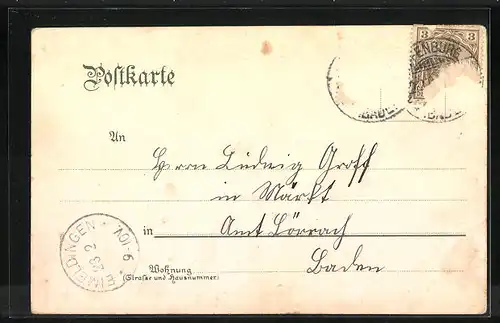 3 3
ENBURG
Postkarte
(BADEN)
(BADE
An
Herrn Ludwig Groff
in Märkt
in Amt Lörrach
Baden
EIMELDINGEN
9. NOV.
Wohnung
(Straße und Hausnummer)